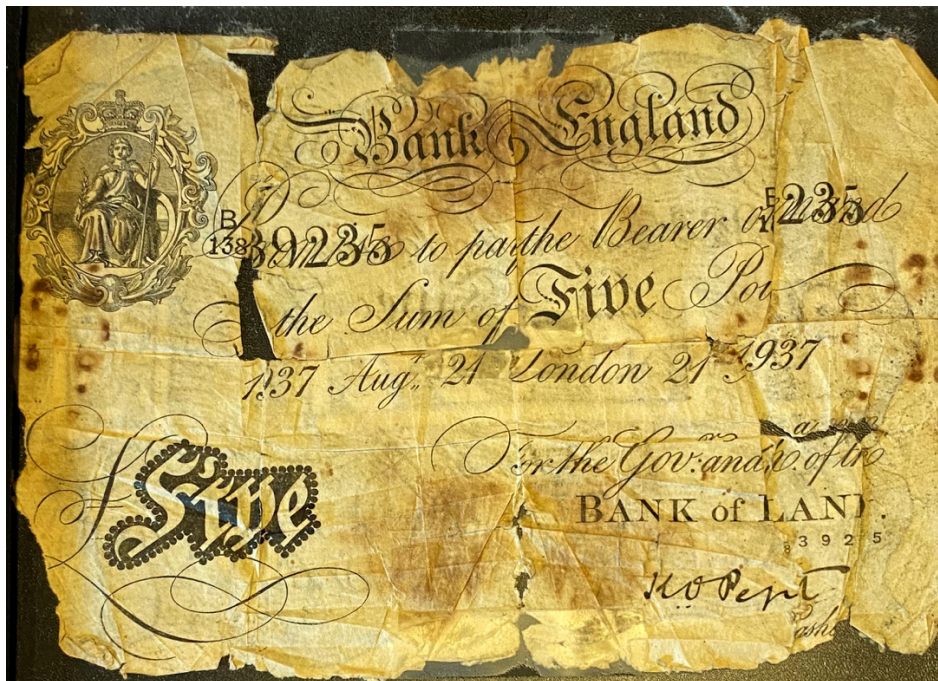 Bank England
B 138 39235 to pay the Bearer on 235
the Sum of Five Pou
1937 Aug.st 21 London 21 1937
For the Gov.rs and C. of
Five
BANK of LAN
3925
K O Pep
ash